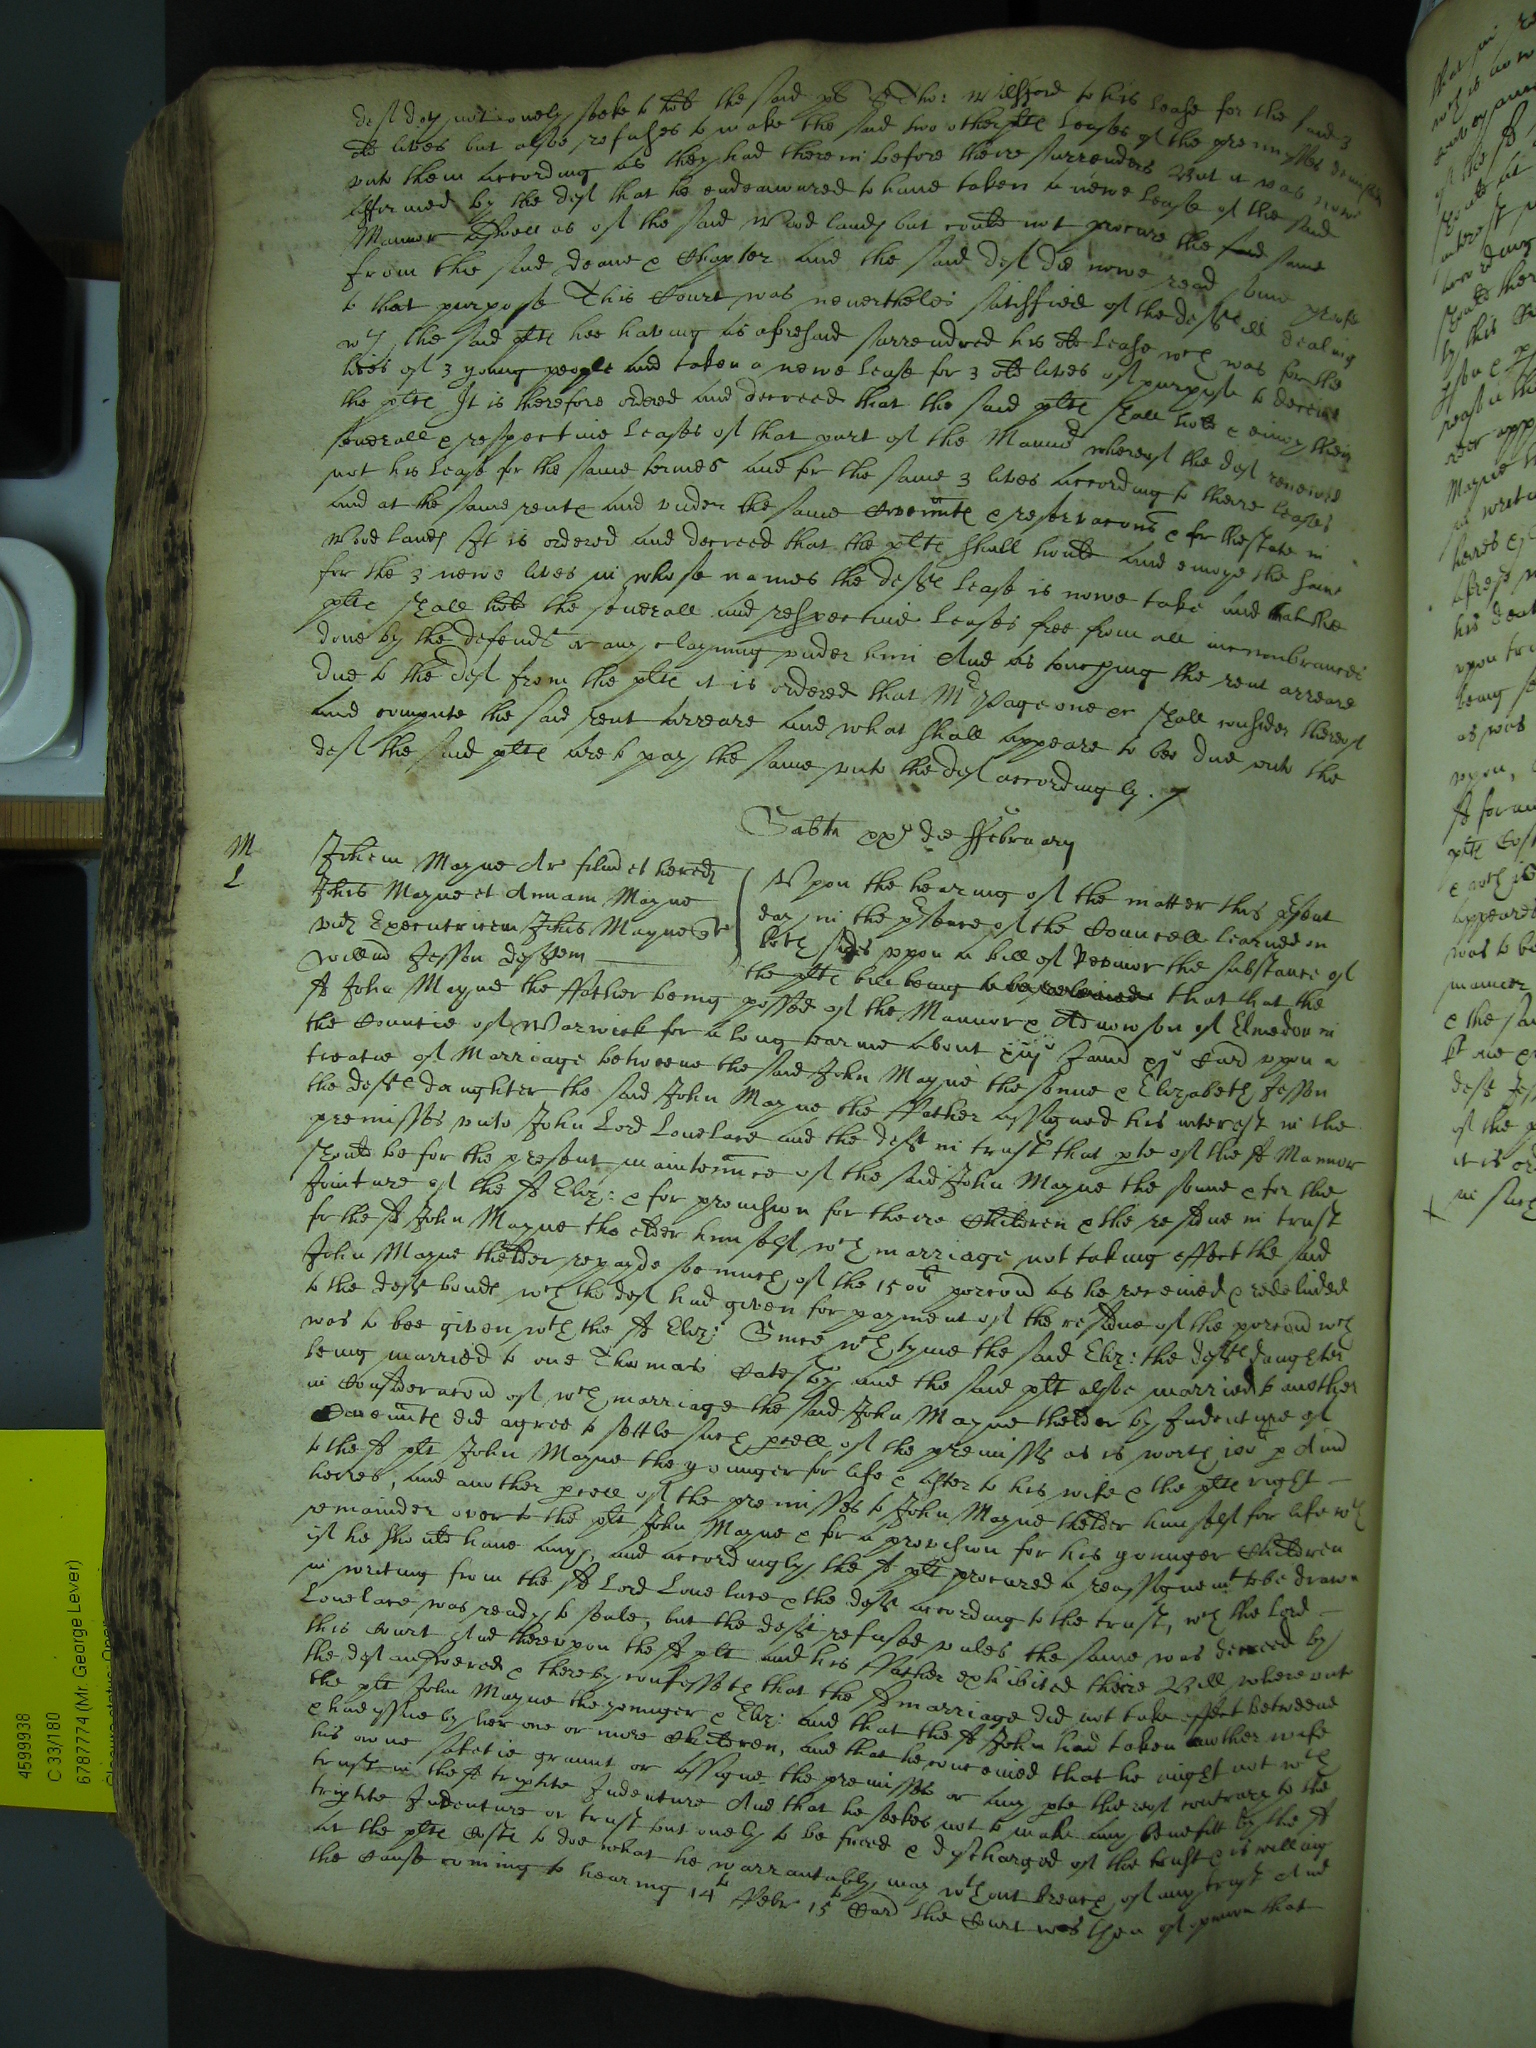 deft doth not onely seeke to hold the said pl Tho: Willford to his lease for the said 3
old lives but alsoe refuseth to make the said two other plts leases of the premisses demised
unto them according as they had therein before theire surrenders But it was nowe
affirmed by the deft that he endeavoured to have taken a newe lease of the said
Mannor aswell as of the said Woodlands but could not procure the same
from the said Deane & Chapter and the said deft did nowe read some proofe
to that purpose This Court was neverthelesse satisfied of the defts ill dealing
wth the said plts hee having as aforesaid surrendred his old lease wch was for the
lives of 3 young people and taken a newe lease for 3 old lives of purpose to deceive
the plts It is therefore ordered and decreed that the said plts shall hold & enioy their
severall & respective leases of that part of the Mannor whereof the deft renewed
not his lease for the same termes and for the same 3 lives according to theire leases
and at the same rents and under the same Covenants & reservacons & for the state in
Woodlands It is ordered and decreed that the plts shall hould and enioye the same
for the 3 newe lives in whose names the defts lease is nowe take and that the
plts shall hold the severall and respective leases free from all incombrances
done by the defendt or any clayming under him And as touching the rent arreare
due to the deft from the plts it is ordered that Mr Page one &c shall consider thereof
and compute the said rent arreare and what shall appeare to bee due unto the
deft the said plts are to pay the same unto the deft accordingly.
Sabti xxj die ffebruary
M
L
Johem Mayne Ar filiu et hered
Johis Mayne et Annam Mayne
vid Executricem Johis Mayne quer
Willm Jesson deftem
Upon the hearing of the matter this present
day in the presence of the Councell learned on
both sides upon a bill of Revivor the substance of
the plts bill being that that the
sd John Mayne the ffather being possed of the Mannor & Advowson of Elmedon in
the Countie of Warwick for a long tearme about xiijo Januar xjo Card upon a
treatie of Marriage betweene the said John Mayne the sonne & Elizabeth Jesson
the defts daughter the said John Mayne the ffather assigned his interest in the
premisses unto John Lord Lovelace and the deft in trust that pte of the sd Mannor
should be for the present maintennce of the said John Mayne the sonne & for the
Jointure of the sd Eliz: & for provision for theire Children & the residue in trust
for the sd John Mayne the elder himself wch marriage not taking effect the said
John Mayne thelder repayde soe much of the 1500li porcon as he received & redelivered
to the deft bonds wch the deft had given for payment of the residue of the porcon wch
was to bee given wth the sd Eliz: Since wch tyme the said Eliz: the defts daughter
being married to one Thomas Catesby and the said plt alsoe married to another
in Consideracon of wch marriage the said John Mayne thelder by Indenture of
Covennts did agree to settle such pcell of the premisses as is worth 100li p Ann
to the sd plt John Mayne the younger for life & after to his wife & the plts right
heires, and another pcell of the premisses to John Mayne thelder himself for life wth
remainder over to the plt John Mayne & for a provision for his younger Children
if he should have any, and accordingly the sd plt procured a reassignemt to be drawn
in writing from the sd Lord Lovelace & the deft according to the trust, wch the Lord
Lovelace was ready to seale, but the deft refused unles the same was decreed by
this Court And thereupon the sd plt and his ffather exhibited theire Bill whereunto
the deft answered & thereby confesseth that the sd marriage did not take effect betweene
the plt John Mayne the younger & Eliz: and that the sd John had taken another wife
& had issue by her one or more Children, and that he conceived that he might not wth
his owne safetie graunt or assigne the premisses or any pte thereof contrary to the
trust in the sd triptite Indenture And that he seekes not to make any benefitt by the sd
triptite Indenture or trust but onely to be freed & discharged of the trust & is willing
at the plts Costs to doe what he warrantably may wthout breach of any trust And
the cause coming to hearing 14to ffebr 15o Card the Court was then of opinion that
4599938
C 33/180
6787774 (Mr. George Lever)